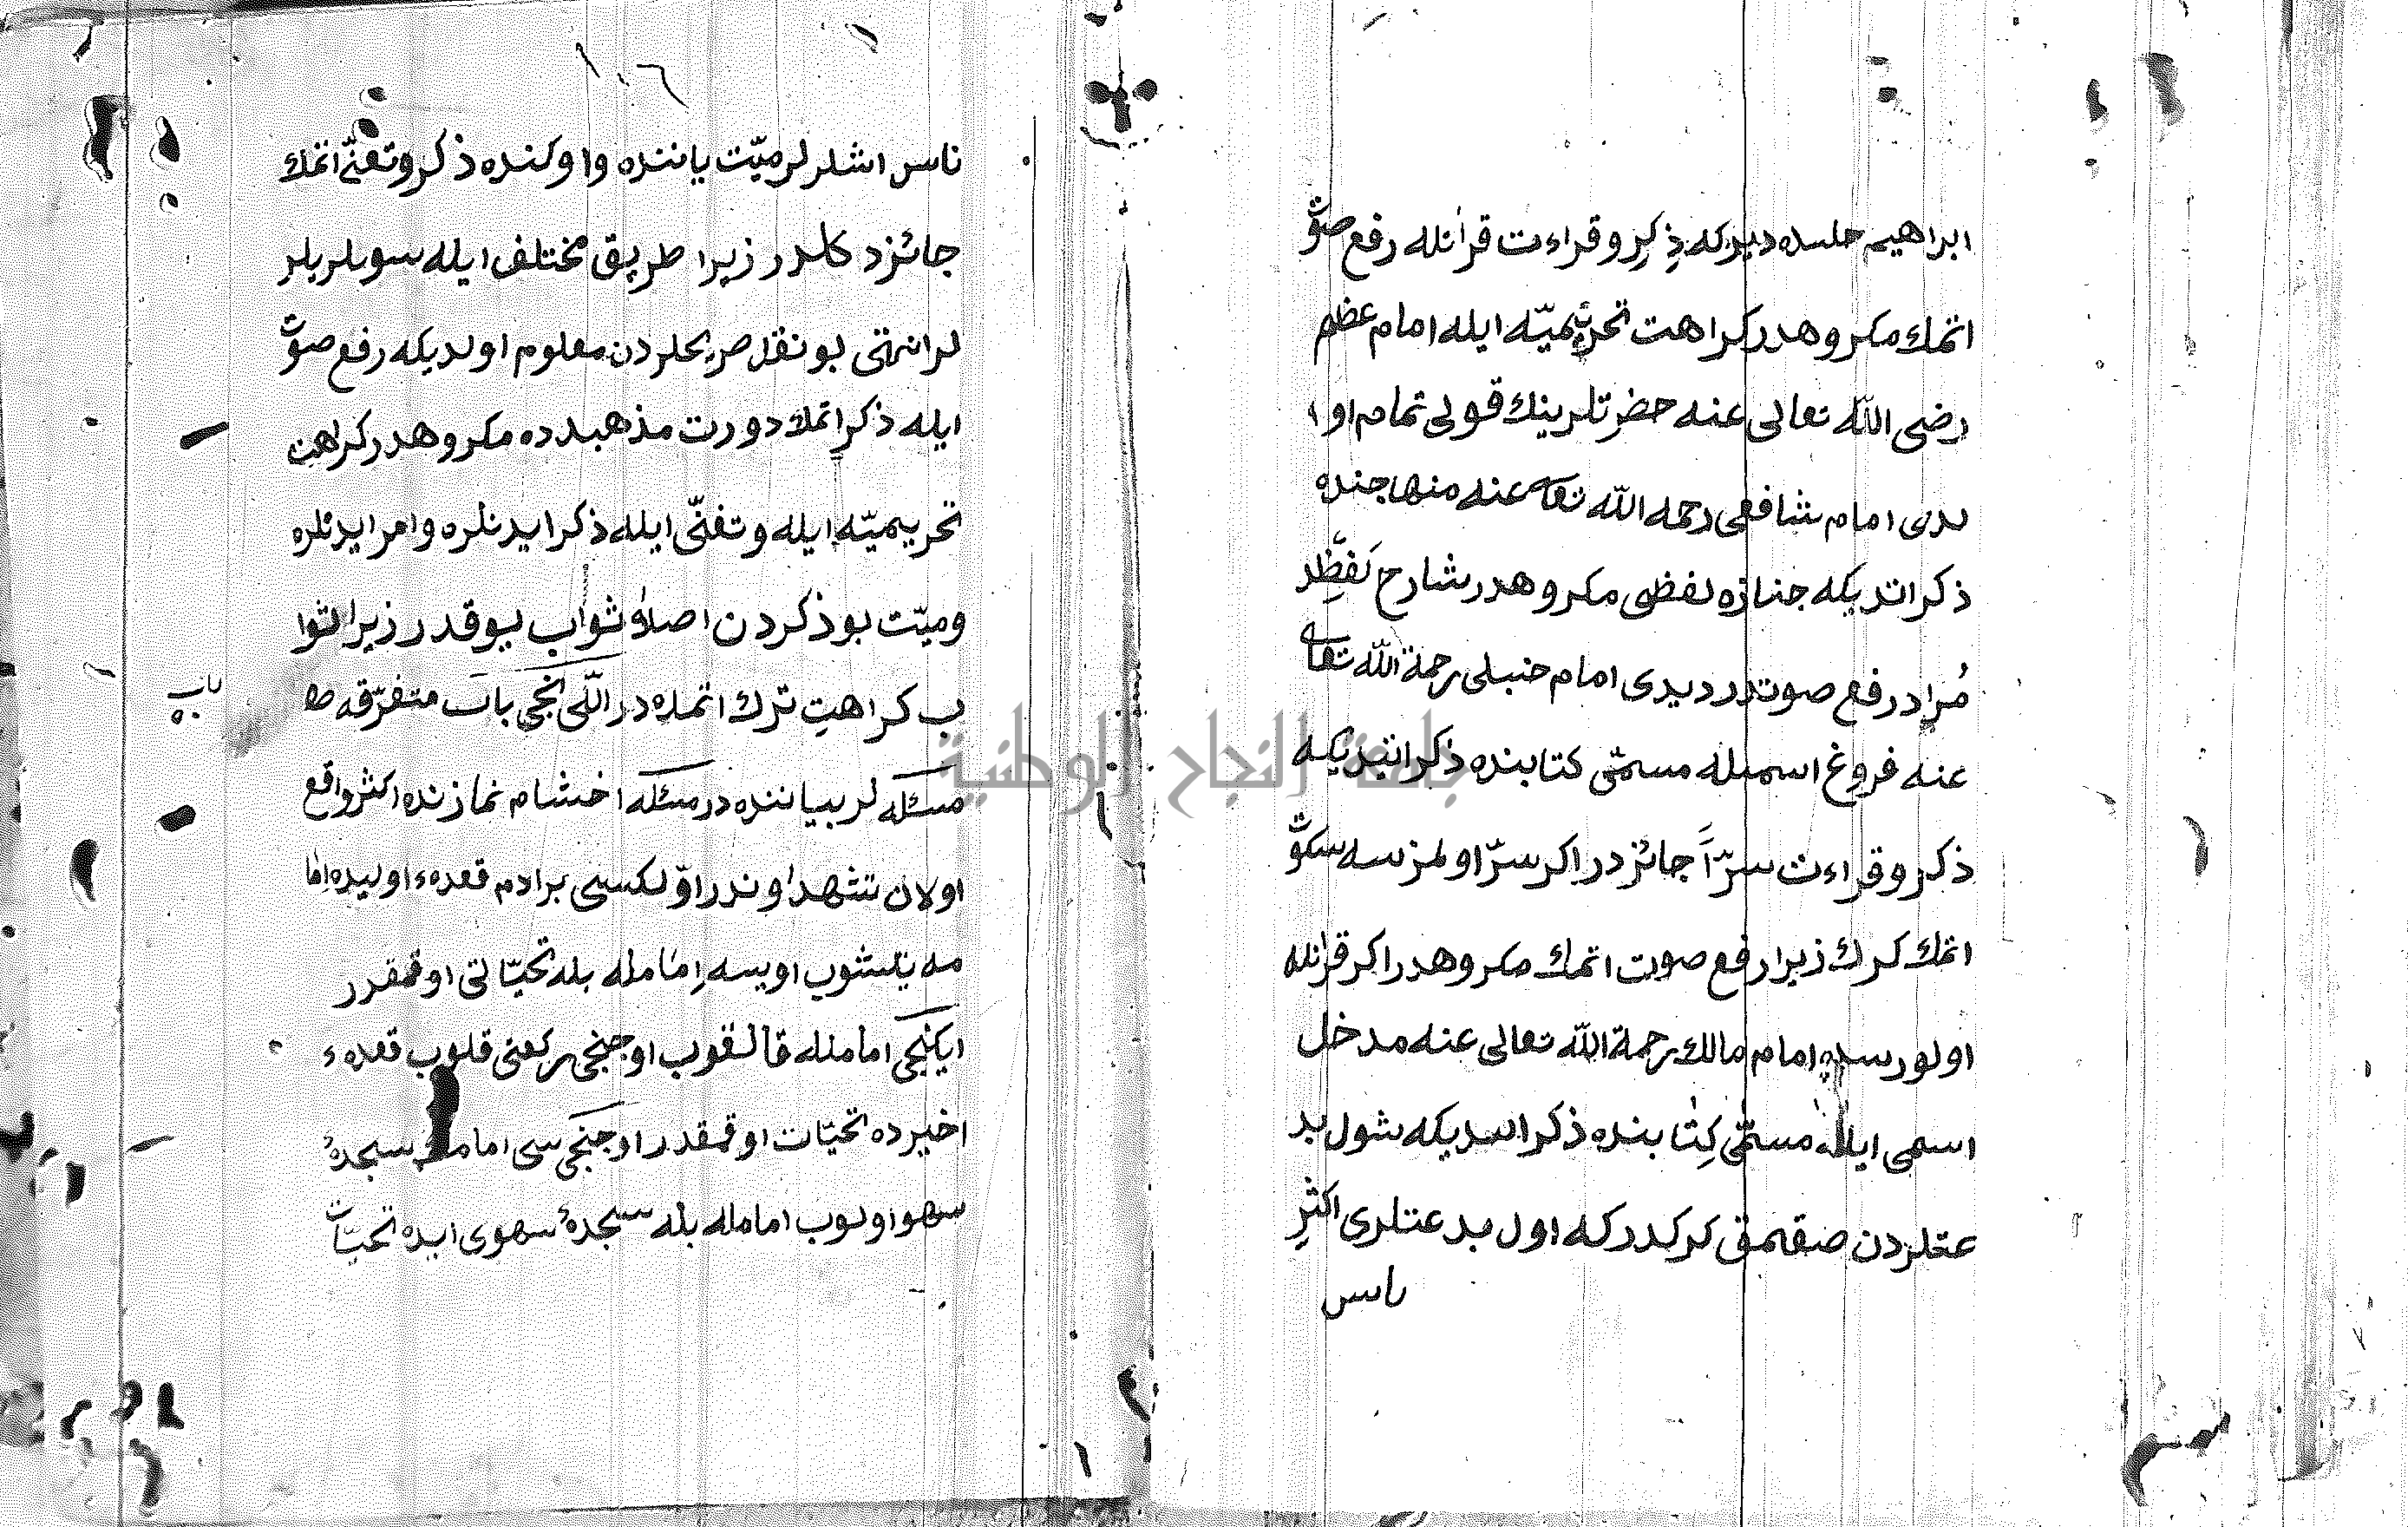 ابراهيم حلبيده ديركه ذِكرِ و قراءت قرانله رفع صوت
اتمك مكروهدر كراهت تحريميّه ايله امام عظم
رضى اللّه تعالى عنه حضرتلرينك قولى تمام او
لدى امام شافعى رحمه اللّه تعا عنه منهاجنده
ذكر اتديكه جنازه لفظى مكروهدر شارح
مُراد رفع صوتدر ديدى امام حنبلى رحمة اللّه تعا
عنه فروغ اسميله مسمّى كتابنده ذكر اتديكه
ذكر و قراءت سرّاً جائزدر اكر سرّا اولمزسه سكوت
اتمك كرك زيرا رفع صوت اتمك مكروهدر اكر قرانله
اولورسه امام مالك رحمة اللّه تعالى عنه مدخل
اسمى ايله مسمّى كِتابنده ذكر اتديكه شول بد
عتلردن صقمق كركدركه اول بدعتلرى اكثرِ
ناس
١٠٦
ناس اشلرلر ميّت ياننده و اوكنده ذكر و تغنّى اتمك
جائز دكلدر زيرا طريق مختلف ايله سويلريلر
لر انتهى بو نقل صريحلردن معلوم اولديكه رفع صوت
ايله ذكر اتمك دورت مذهبده مكروهدر كراهت
تحريميّه ايله و تغنّى ايله ذكر ايدنلره و امر ايدنلره
و ميّت بو ذكردن اصلا ثواب يوقدر زيرا ثوا
ب كراهتِ ترك اتمده در اللّى نجى باب متفرّقه
باب
مسئله لر بياننده در مسئله اخشام نمازنده اكثر واقع
اولان تشهد اوندر اوّلكسى بر ادم قعدهء اوليده اما
مه يتشوب اويسه اِمامله بله تحيّاتى اوقمقدر
ايكنجى امامله قالقوب اوجنجى ركعتى قلوب قعدهء
اخيرده تحيّات اوقمقدر اوجنجى سى امامك سجدهٔ
سهو اولوب امامله بله سجدهٔ سهوى ايده تحيّات